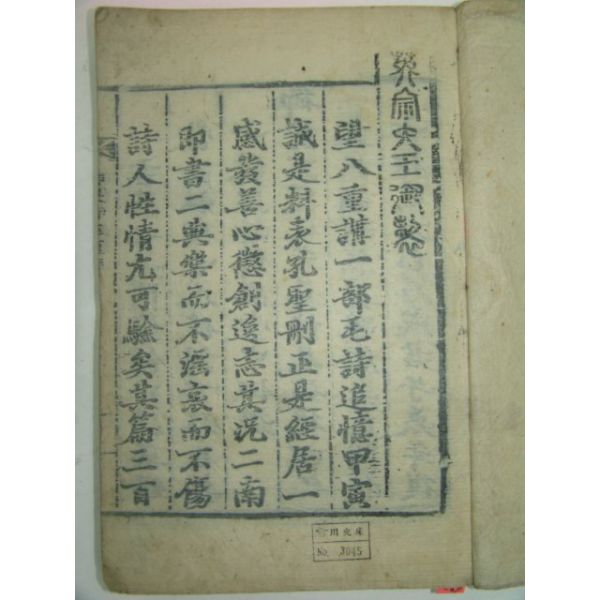 英宗大王御製
望八重講一部毛詩追憶甲寅
誠是料表孔聖刪正是經居一
感發善心懲創逸志其況二南
即書二典樂而不淫哀而不傷
詩人性情尤可驗矣其篇三百
No. 3045